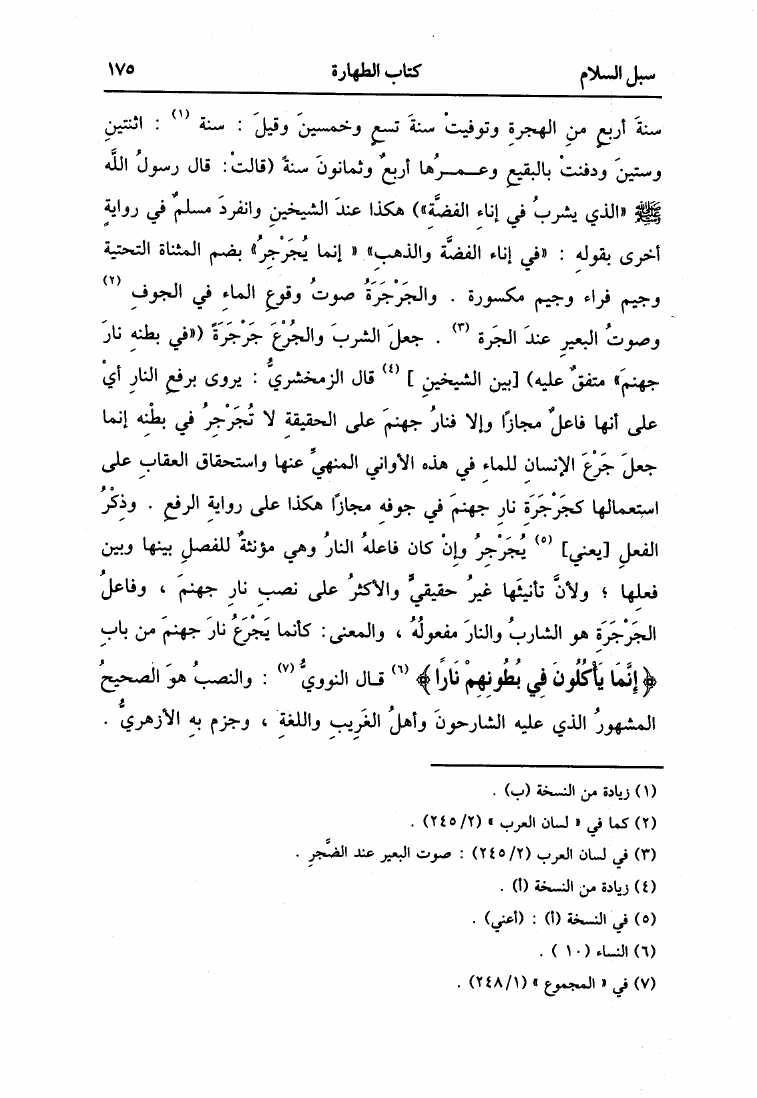 سبل السلام كتاب الطهارة ١٧٥
سنةَ أربعٍ منِ الهجرةِ وتوفيتْ سنةَ تسعٍ وخمسينَ وقيلَ : سنة (١) : اثنتينِ
وستينَ ودفنتْ بالبقيعِ وعـمـرُها أربعٌ وثمانونَ سنةً (قالتْ: قال رسولُ اللَّه
ﷺ «الذي يشربُ في إناءِ الفضَّة») هكذا عندَ الشيخينِ وانفردَ مسلمٌ في روايةٍ
أخرى بقولهِ : «في إناء الفضَّة والذهبِ» « إنما يُجَرْجِرُ» بضم المثناة التحتية
وجيم فراء وجيم مكسورة . والجَرْجَرَةُ صوتُ وقوعِ الماءِ في الجوفِ (٢)
وصوتُ البعيرِ عندَ الجَرة (٣) . جعلَ الشربَ والجُرْعَ جَرْجَرَةً («في بطنهِ نارَ
جهنمَ» متفقٌ عليه) [بين الشيخينِ ] (٤) قال الزمخشريُّ : يروى برفعِ النارِ أيْ
على أنها فاعلٌ مجازًا وإلا فنارُ جهنمَ على الحقيقةِ لا تُجَرْجِرُ في بطْنهِ إنما
جعلَ جَرْعَ الإنسانِ للماءِ في هذه الأواني المنهيِّ عنها واستحقاق العقابِ على
استعمالها كجَرْجَرَةِ نارِ جهنمَ في جوفهِ مجازًا هكذا على روايةِ الرفعِ . وذِكْرُ
الفعلِ [يعني] (٥) يُجَرْجِرُ وإنْ كان فاعلهُ النارُ وهي مؤنثةٌ للفصلِ بينها وبين
فعلها ؛ ولأنَّ تأنيثَها غيرُ حقيقيٍّ والأكثرُ على نصبِ نارِ جهنمَ ، وفاعلُ
الجَرْجَرَةِ هو الشاربُ والنارَ مفعولُهُ ، والمعنى: كأنما يَجْرَعُ نارَ جهنمَ من بابِ
﴿ إِنَّمَا يَأْكُلُونَ فِي بُطُونِهِمْ نَارًا ﴾ (٦) قـال النوويُّ (٧) : والنصبُ هوَ الصحيحُ
المشهورُ الذي عليه الشارحونَ وأهلُ الغَريبِ واللغةِ ، وجزم بهِ الأزهريُّ .
(١) زيادة من النسخة (ب) .
(٢) كما في « لسان العرب » (٢٤٥/٢) .
(٣) في لسان العرب (٢٤٥/٢) : صوت البعير عند الضَّجرِ .
(٤) زيادة من النسخة (أ) .
(٥) في النسخة (أ) : (أعني) .
(٦) النساء (١٠ ) .
(٧) في « المجموع » (٢٤٨/١) .